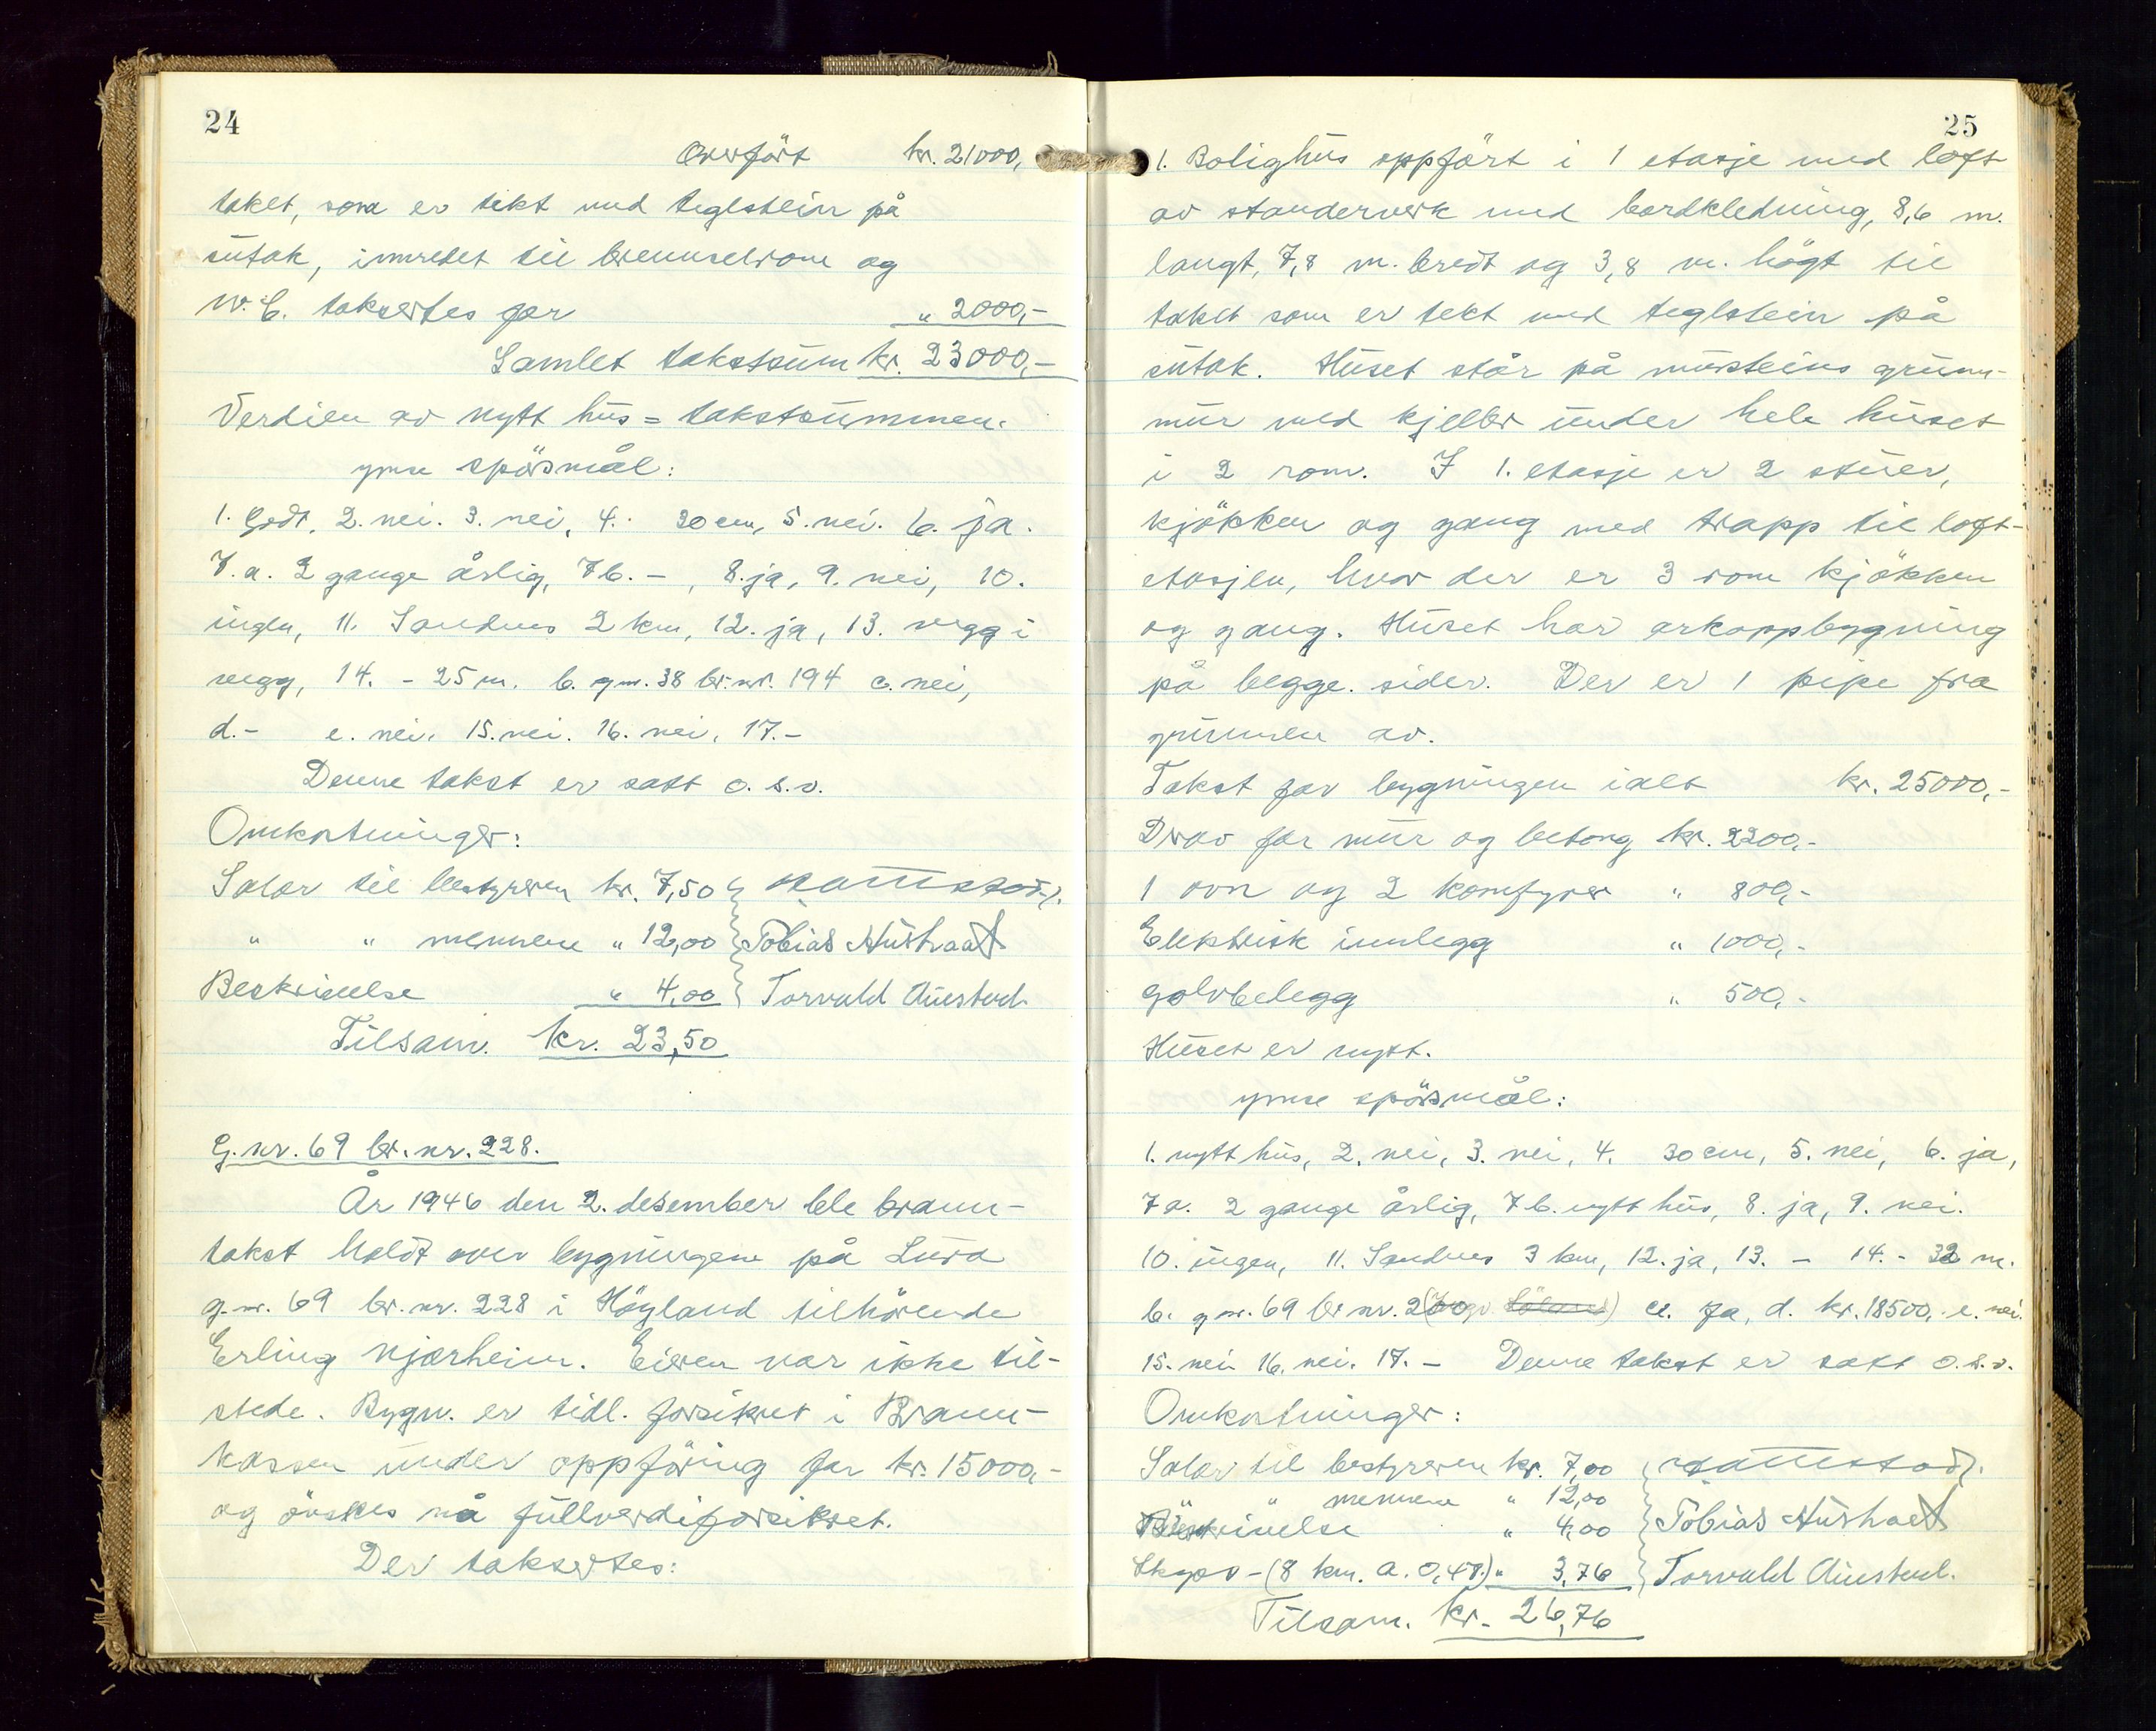 24
Overført kr. 21000,
taket, som er tekt med teglstein på
sutak, innredet til brenselrom og
W.C. taksertes for " 2000,-
Samlet takstsum kr. 23000,-
Verdien av nytt hus = takstsummen.
ymse spörsmål:
1. Godt, 2. nei. 3. nei, 4. 30 cm, 5. nei. 6. ja.
7.a. 2 gange årlig, 7b. - , 8. ja, 9. nei, 10.
ingen, 11. Sandnes 2 km, 12. ja, 13. vegg i
vegg, 14. - 25 m. b. gnr. 38 br.nr. 194 c. nei,
d.- e. nei. 15. nei. 16. nei. 17.-
Denne takst er satt o.s.v.
Omkostninger:
Salær til bestyreren kr. 7,50
" " mennene " 12,00 Tobias Austraat
Beskrivelse " 4,00 Torvald Auestad
Tilsam. kr. 23,50
G.nr. 69 br.nr. 228.
År 1946 den 2. desember ble brann-
takst holdt over bygningene på Lura
g.nr. 69 br.nr. 228 i Höyland tilhörende
Erling Njærheim. Eieren var ikke til-
stede. Bygn. er tidl. forsikret i Brann-
kassen under oppföring for kr. 15000,-
og önskes nå fullverdiforsikret.
Der taksertes:
25
1. Bolighus oppfört i 1 etasje med loft
av standerverk med bordkledning, 8,6 m.
langt, 7,8 m. bredt og 3,8 m. högt til
taket som er tekt med teglstein på
sutak. Huset står på mursteins grunn-
mur med kjeller under hele huset
i 2 rom. I 1. etasje er 2 stuer,
kjökken og gang med trapp til loft-
etasjen, hvor der er 3 rom kjökken
og gang. Huset har arkoppbygning
på begge sider. Der er 1 pipe fra
grunnen av.
Takst for bygningen ialt kr. 25000,-
Derav for mur og betong kr. 2200,-
1 ovn og 2 komfyrer " 800,-
Elektrisk innlegg " 1000,-
golvbelegg " 500,-
Huset er nytt.
ymse spörsmål:
1. nytt hus, 2. nei, 3. nei, 4. 30 cm, 5. nei, 6. ja,
7a. 2 gange årlig, 7b. nytt hus, 8. ja, 9. nei.
10. ingen, 11. Sandnes 3 km, 12. ja, 13. - 14. - 32 m.
b. gnr. 69 br nr. c. ja, d. kr. 18500,- e. nei.
15. nei 16. nei. 17. - Denne takst er satt o.s.v.
Omkostninger:
Salær til bestyreren kr. 7,00
" " mennene " 12,00
Beskrivelse " 4,00 Tobias Austraat
Skyss - (8 km. a. 0,47.) " 3,76 Torvald Auestad.
Tilsam. kr. 26,76